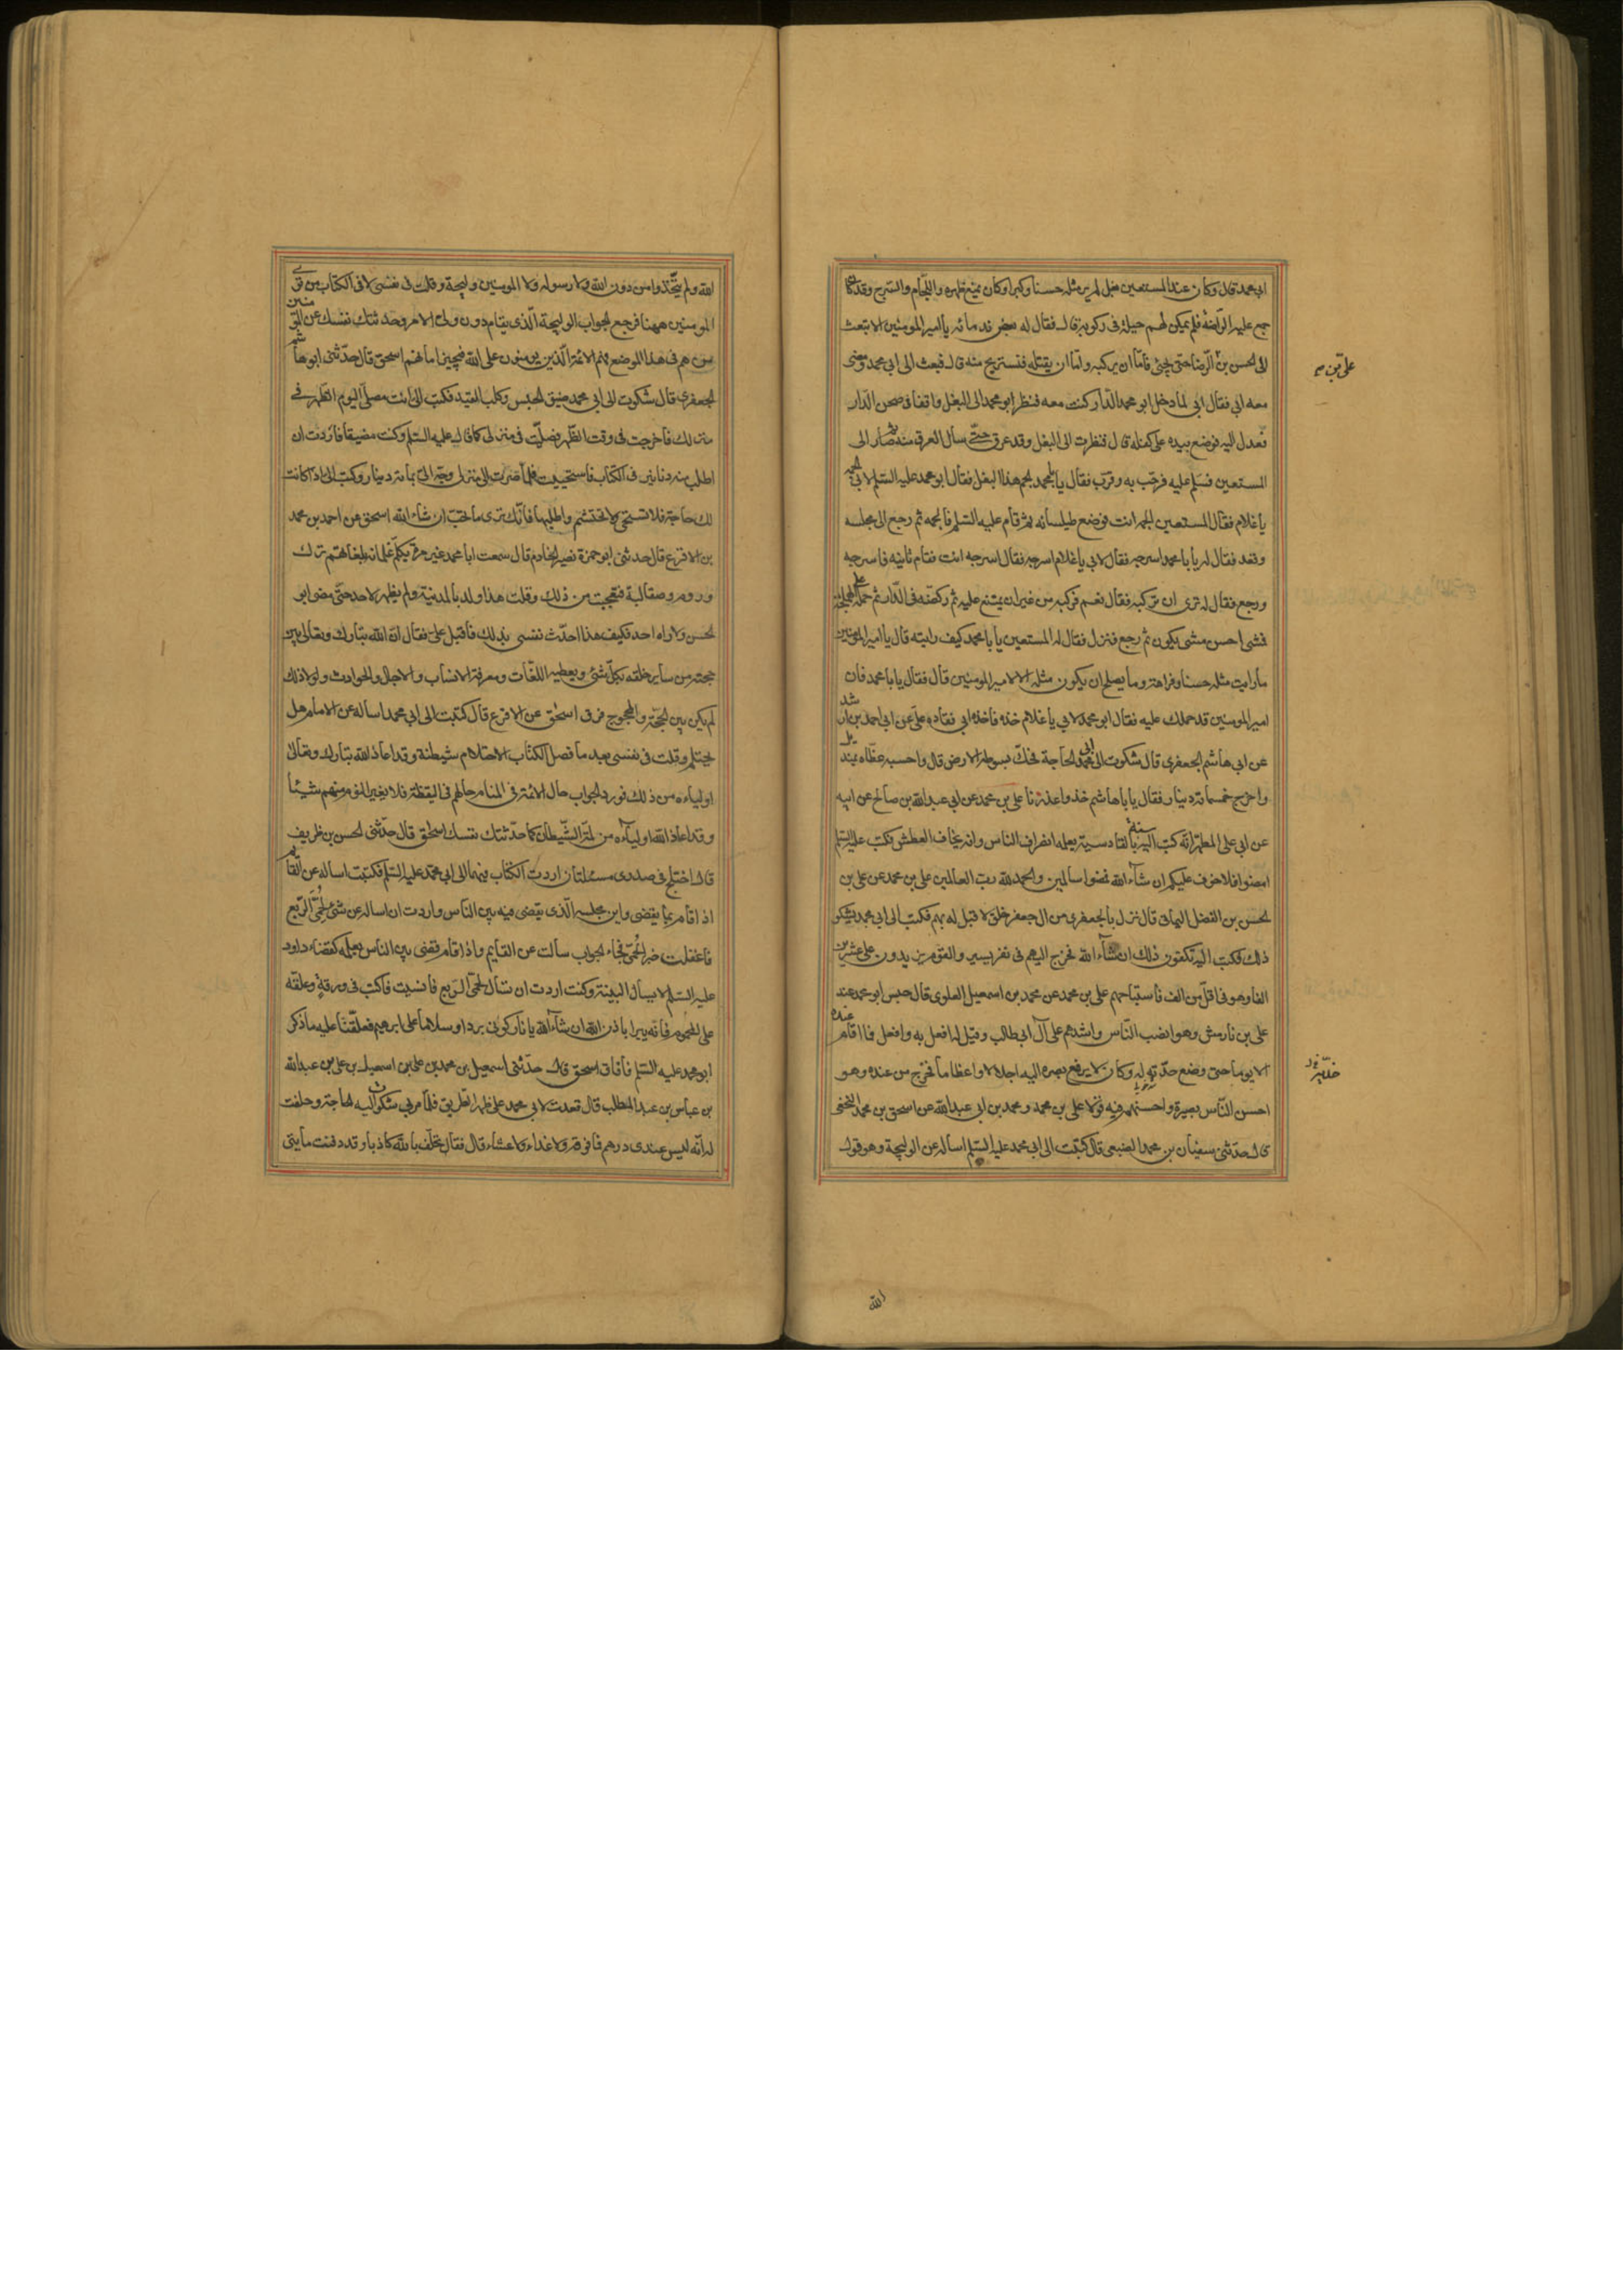 ابي محمد قال وكان عند المستعين بغل لم ير مثله حسنا وكبرا وكان يمنع ظهره واللجام والسرج وقد كان
جمع عليه الراضة فلم يمكن لهم حيلة في ركوبه قال فقال له بعض ندمائه يا امير المومنين الا تبعث
الى الحسن بن الرضا حتى يجئ فاما ان يركبه واما ان يقتله فنستريح منه قال فبعث الى ابي محمد ومضى
معه ابي فقال ابي لما دخل ابو محمد الدار كنت معه فنظر ابو محمد الى البغل واقفا في صحن الدار
فعدل اليه فوضع بيده على كفله قال فنظرت الى البغل وقد عرق حتى سال العرق منه ثم صار الى
المستعين فسلم عليه فرحب به وقرب فقال يا با محمد الجم هذا البغل فقال ابو محمد عليه السلم لابي الجمه
يا غلام فقال المستعين الجمه انت فوضع طيلسانه ثم قام عليه السلم فالجمه ثم رجع الى مجلسه
وقعد فقال له يا با محمد اسرجه فقال لابي يا غلام اسرجه فقال اسرجه انت فقام ثانيه فاسرجه
ورجع فقال له ترى ان تركبه فقال نعم فركبه من غير ان يمتنع عليه ثم ركضه في الدار ثم حمله على الهملجة
فمشى احسن مشى يكون ثم رجع فنزل فقال له المستعين يا با محمد كيف رايته قال يا امير المومنين
ما رايت مثله حسنا وفراهة وما يصلح ان يكون مثله الا لامير المومنين قال فقال يا با محمد فان
امير المومنين قد حملك عليه فقال ابو محمد لابي يا غلام خذه فاخذه ابي فقاده علي عن ابي احمد بن راشد
عن ابي هاشم الجعفري قال شكوت الى ابي محمد الحاجة فحك بسوطه الارض قال واحسبه غطاه بمنديل
واخرج خمسمائة دينار فقال يا با هاشم خذ واعذرنا علي بن محمد عن ابي عبد الله بن صالح عن ابيه
عن ابي علي المطهر انه كتب اليه سنة بالقادسية يعلمه انصراف الناس وانه يخاف العطش فكتب عليه السلم
امضوا فلا خوف عليكم ان شاء الله فمضوا سالمين والحمد لله رب العالمين علي بن محمد عن علي بن
الحسن بن الفضل اليماني قال نزل بالجعفري من ال جعفر خلق لا قبل له بهم فكتب الى ابي محمد يشكو
ذلك فكتب اليه تكفون ذلك ان شاء الله فخرج اليهم في نفر يسير والقوم يزيدون على عشرين
الفا وهو في اقل من الف فاستباحهم علي بن محمد عن محمد بن اسمعيل العلوي قال حبس ابو محمد عند
علي بن نارمش وهو انصب الناس واشدهم على آل ابي طالب وقيل له افعل به وافعل فما اقام عنده
الا يوما حتى وضع خديه له وكان لا يرفع بصره اليه اجلالا واعظاما فخرج من عنده وهو
احسن الناس بصيرة واحسنهم فيه قولا علي بن محمد ومحمد بن ابي عبد الله عن اسحق بن محمد النخعي
قال حدثني سفيان بن محمد الضبعي قال كتبت الى ابي محمد عليه السلم اساله عن الوليجة وهو قول
الله
الله ولم يتخذوا من دون الله ولا رسوله ولا المومنين وليجة وقلت في نفسي لا في الكتاب من ترى
المومنين ههنا فرجع الجواب الوليجة الذي يقام دون ولي الامر وحدثتك نفسك عن المومنين
من هم في هذا الموضع فهم الائمة الذين يومنون على الله فيجيز امانهم اسحق قال حدثني ابو هاشم
الجعفري قال شكوت الى ابي محمد ضيق الحبس وكلب القيد فكتب الي انت مصلي اليوم الظهر في
منزلك فاخرجت في وقت الظهر فصليت في منزلي كما قال عليه السلم وكنت مضيقا فاردت ان
اطلب منه دنانير في الكتاب فاستحييت فلما صرت الى منزلي وجه الي بمائة دينار وكتب الي اذا كانت
لك حاجة فلا تستحي ولا تحتشم واطلبها فانك ترى ما تحب ان شاء الله اسحق عن احمد بن محمد
بن الاقرع قال حدثني ابو حمزة نصير الخادم قال سمعت ابا محمد غير مرة يكلم غلمانه بلغاتهم ترك
وروم وصقالبة فتعجبت من ذلك وقلت هذا ولد بالمدينة ولم يظهر لاحد حتى مضى ابو
الحسن ولا راه احد فكيف هذا احدث نفسي بذلك فاقبل علي فقال ان الله تبارك وتعالى بين
حجته من ساير خلقه بكل شئ ويعطيه اللغات ومعرفة الانساب والاجال والحوادث ولولا ذلك
لم يكن بين الحجة والمحجوج فرق اسحق عن الاقرع قال كتبت الى ابي محمد اساله عن الامام هل
يحتلم وقلت في نفسي بعد ما فصل الكتاب الاحتلام شيطنة وقد اعاذ الله تبارك وتعالى
اولياءه من ذلك فورد الجواب حال الائمة في المنام حالهم في اليقظة فلا يغير النوم منهم شيئا
وقد اعاذ الله اولياءه من لمة الشيطان كما حدثتك نفسك اسحق قال حدثني الحسن بن ظريف
قال اختلج في صدري مسئلتان اردت الكتاب فيهما الى ابي محمد عليه السلم فكتبت اساله عن القايم
اذا قام بما يقضي واين مجلسه الذي يقضي فيه بين الناس واردت ان اساله عن شئ لحمى الربع
فاغفلت خبر الحمى فجاء الجواب سالت عن القايم واذا قام قضى بين الناس بعلمه كقضاء داود
عليه السلم لا يسال البينة وكنت اردت ان تسال لحمى الربع فانسيت فاكتب في ورقة وعلقه
على المحموم فانه يبرا باذن الله ان شاء الله يا نار كوني بردا وسلاما على ابرهيم فعلقنا عليه ما ذكر
ابو محمد عليه السلم فافاق اسحق قال حدثني اسمعيل بن محمد بن علي بن اسمعيل بن علي بن عبد الله
بن عباس بن عبد المطلب قال قعدت لابي محمد على ظهر الطريق فلما مر بي شكوت اليه الحاجة وحلفت
له انه ليس عندي درهم فما فوقه ولا غداء ولا عشاء قال فقال تحلف بالله كاذبا وقد دفنت مايتي